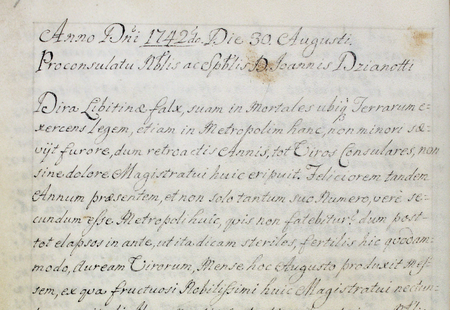 Anno Dni 1742do. Die 30. Augusti.
Proconsulatu Nblis ac Spblis D. Joannis Dzianotti
Dira Libitinæ falx, suam in Mortales ubiq Terrarum e-
xercens legem, etiam in Metropolim hanc, non minori sæ-
vijt furore, dum retroactis Annis, tot Viros Consulares, non
sine dolore Magistratui huic eripuit. Feliciorem tandem
Annum præsentem, et non solo tantum suo Numero, vere se-
cundum esse Metropoli huic, quis non fatebitur? dum post
tot elapsos in ante, ut ita dicam steriles, fertilis hic quodam-
modo, Auream Virorum, Mense hoc Augusto produxit Mes-
sem, ex qua fructuosi Nobilissimi huic Magistratui